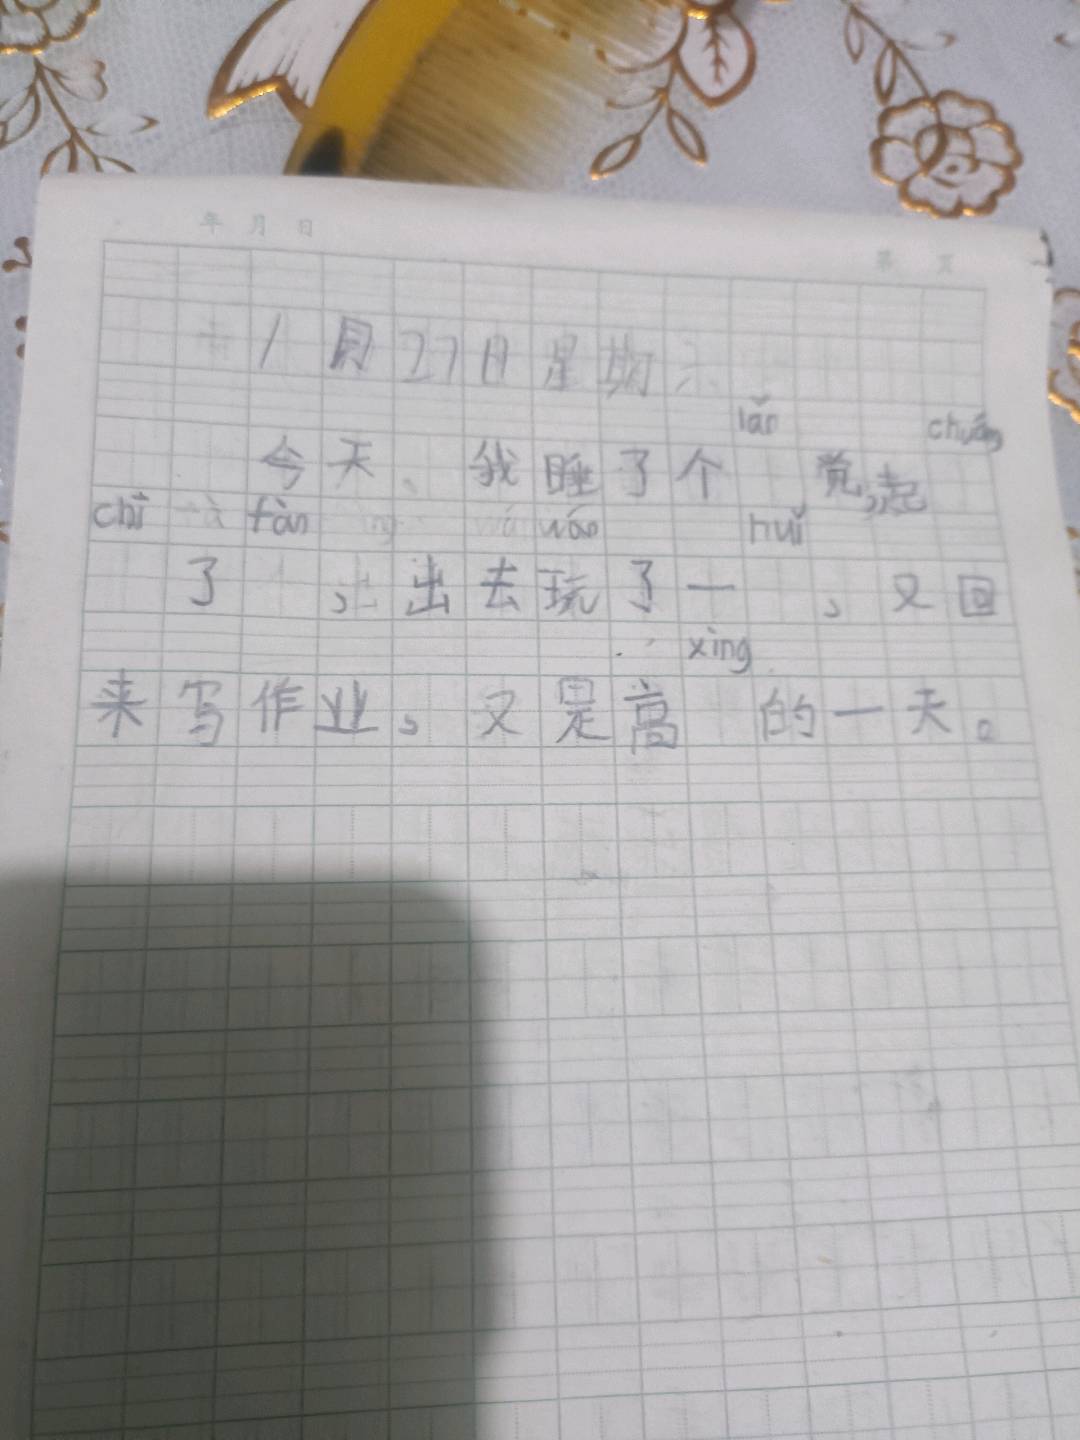 年 月 日 第 页
1月27日星期六
今天、我睡了个lǎn觉,起chuáng
chī了fàn,出去玩了一huǐ,又回
来写作业,又是高xìng的一天。